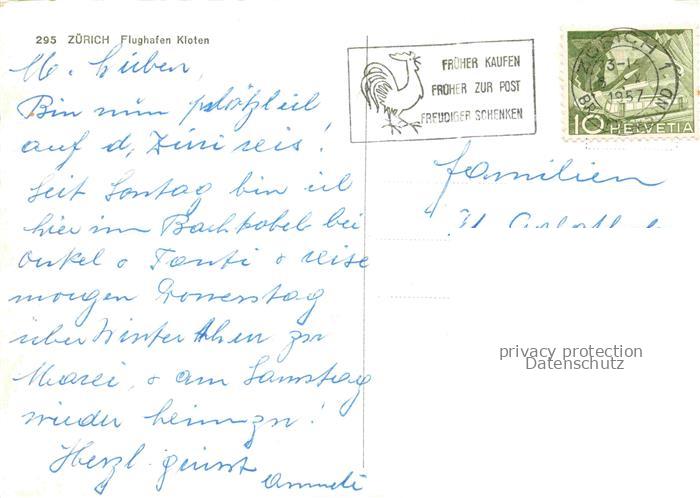 295 ZÜRICH Flughafen Kloten
M. Lieben,
Bin nun plötzlich
auf d. Züri reis!
Seit Sontag bin ich
hier im Bachtobel bei
Onkel & Tanti & reise
morgen Donnerstag
über Winterthur zu
& am Samstag
wieder heimzu!
Herzl. grüsst
FRÜHER KAUFEN
FRÜHER ZUR POST
FREUDIGER SCHENKEN
ZÜRICH 1
1957
10 HELVETIA
Familien
privacy protection
Datenschutz